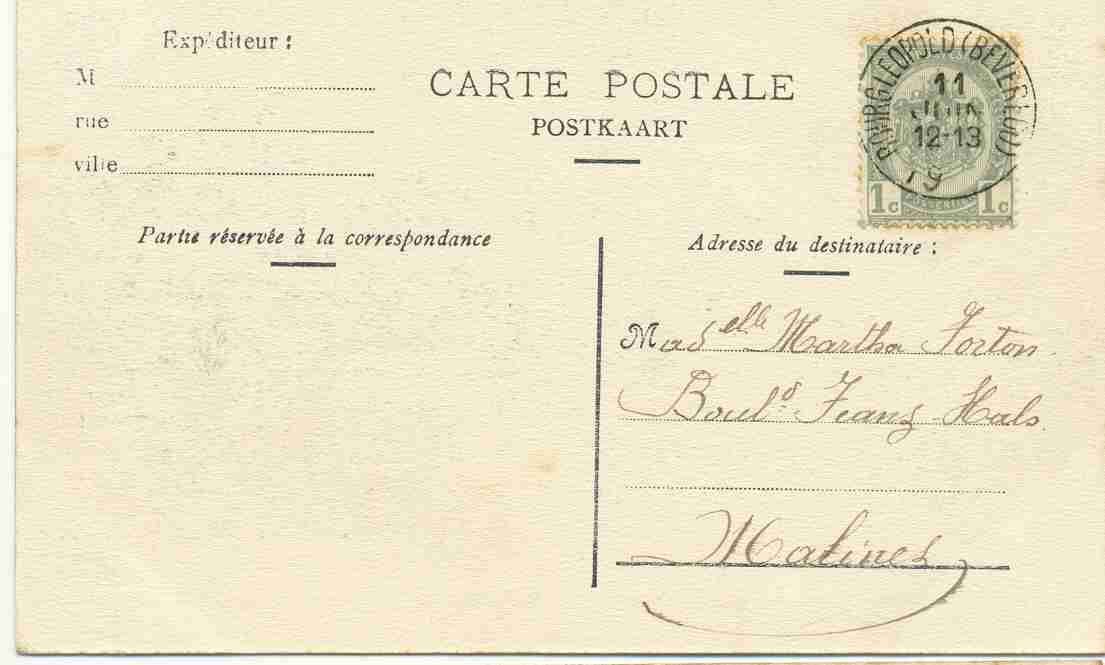 Expéditeur :
M
rue
ville
CARTE POSTALE
POSTKAART
BOURG LEOPOLD (BEVERLOO)
11
JUIN
12-13
19
1c 1c
Partie réservée à la correspondance
Adresse du destinataire :
Madelle Martha Forton
Bould Franz Hals.
Malines